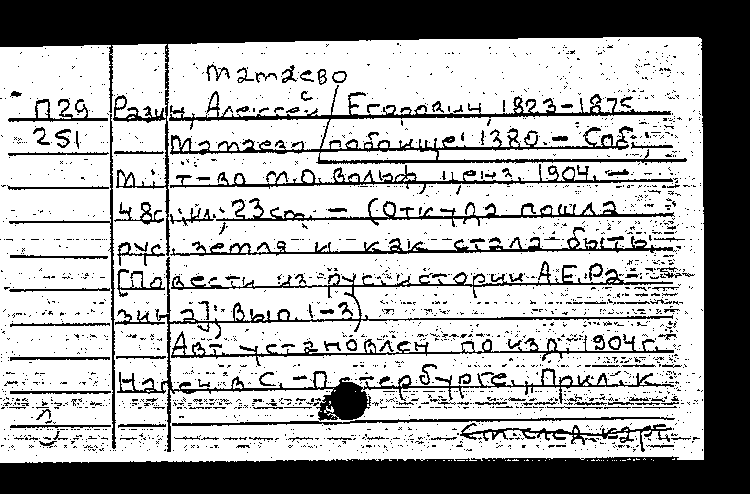 Мамаево
П29 Разин, Алексей Егорович, 1823-1875
251 Мамаево побоище: 1380. - Спб.;
М.: т-во М.О. Вольф, ценз. 1904. -
48с.: ил.; 23см. - (Откуда пошла
рус. земля и как стала быть:
[Повести из рус. истории А.Е. Ра-
зина]; Вып. 1-3).
Авт. установлен по изд. 1904г.
Напеч. в С.-Петербурге. „Прил. к
См. след. карт.